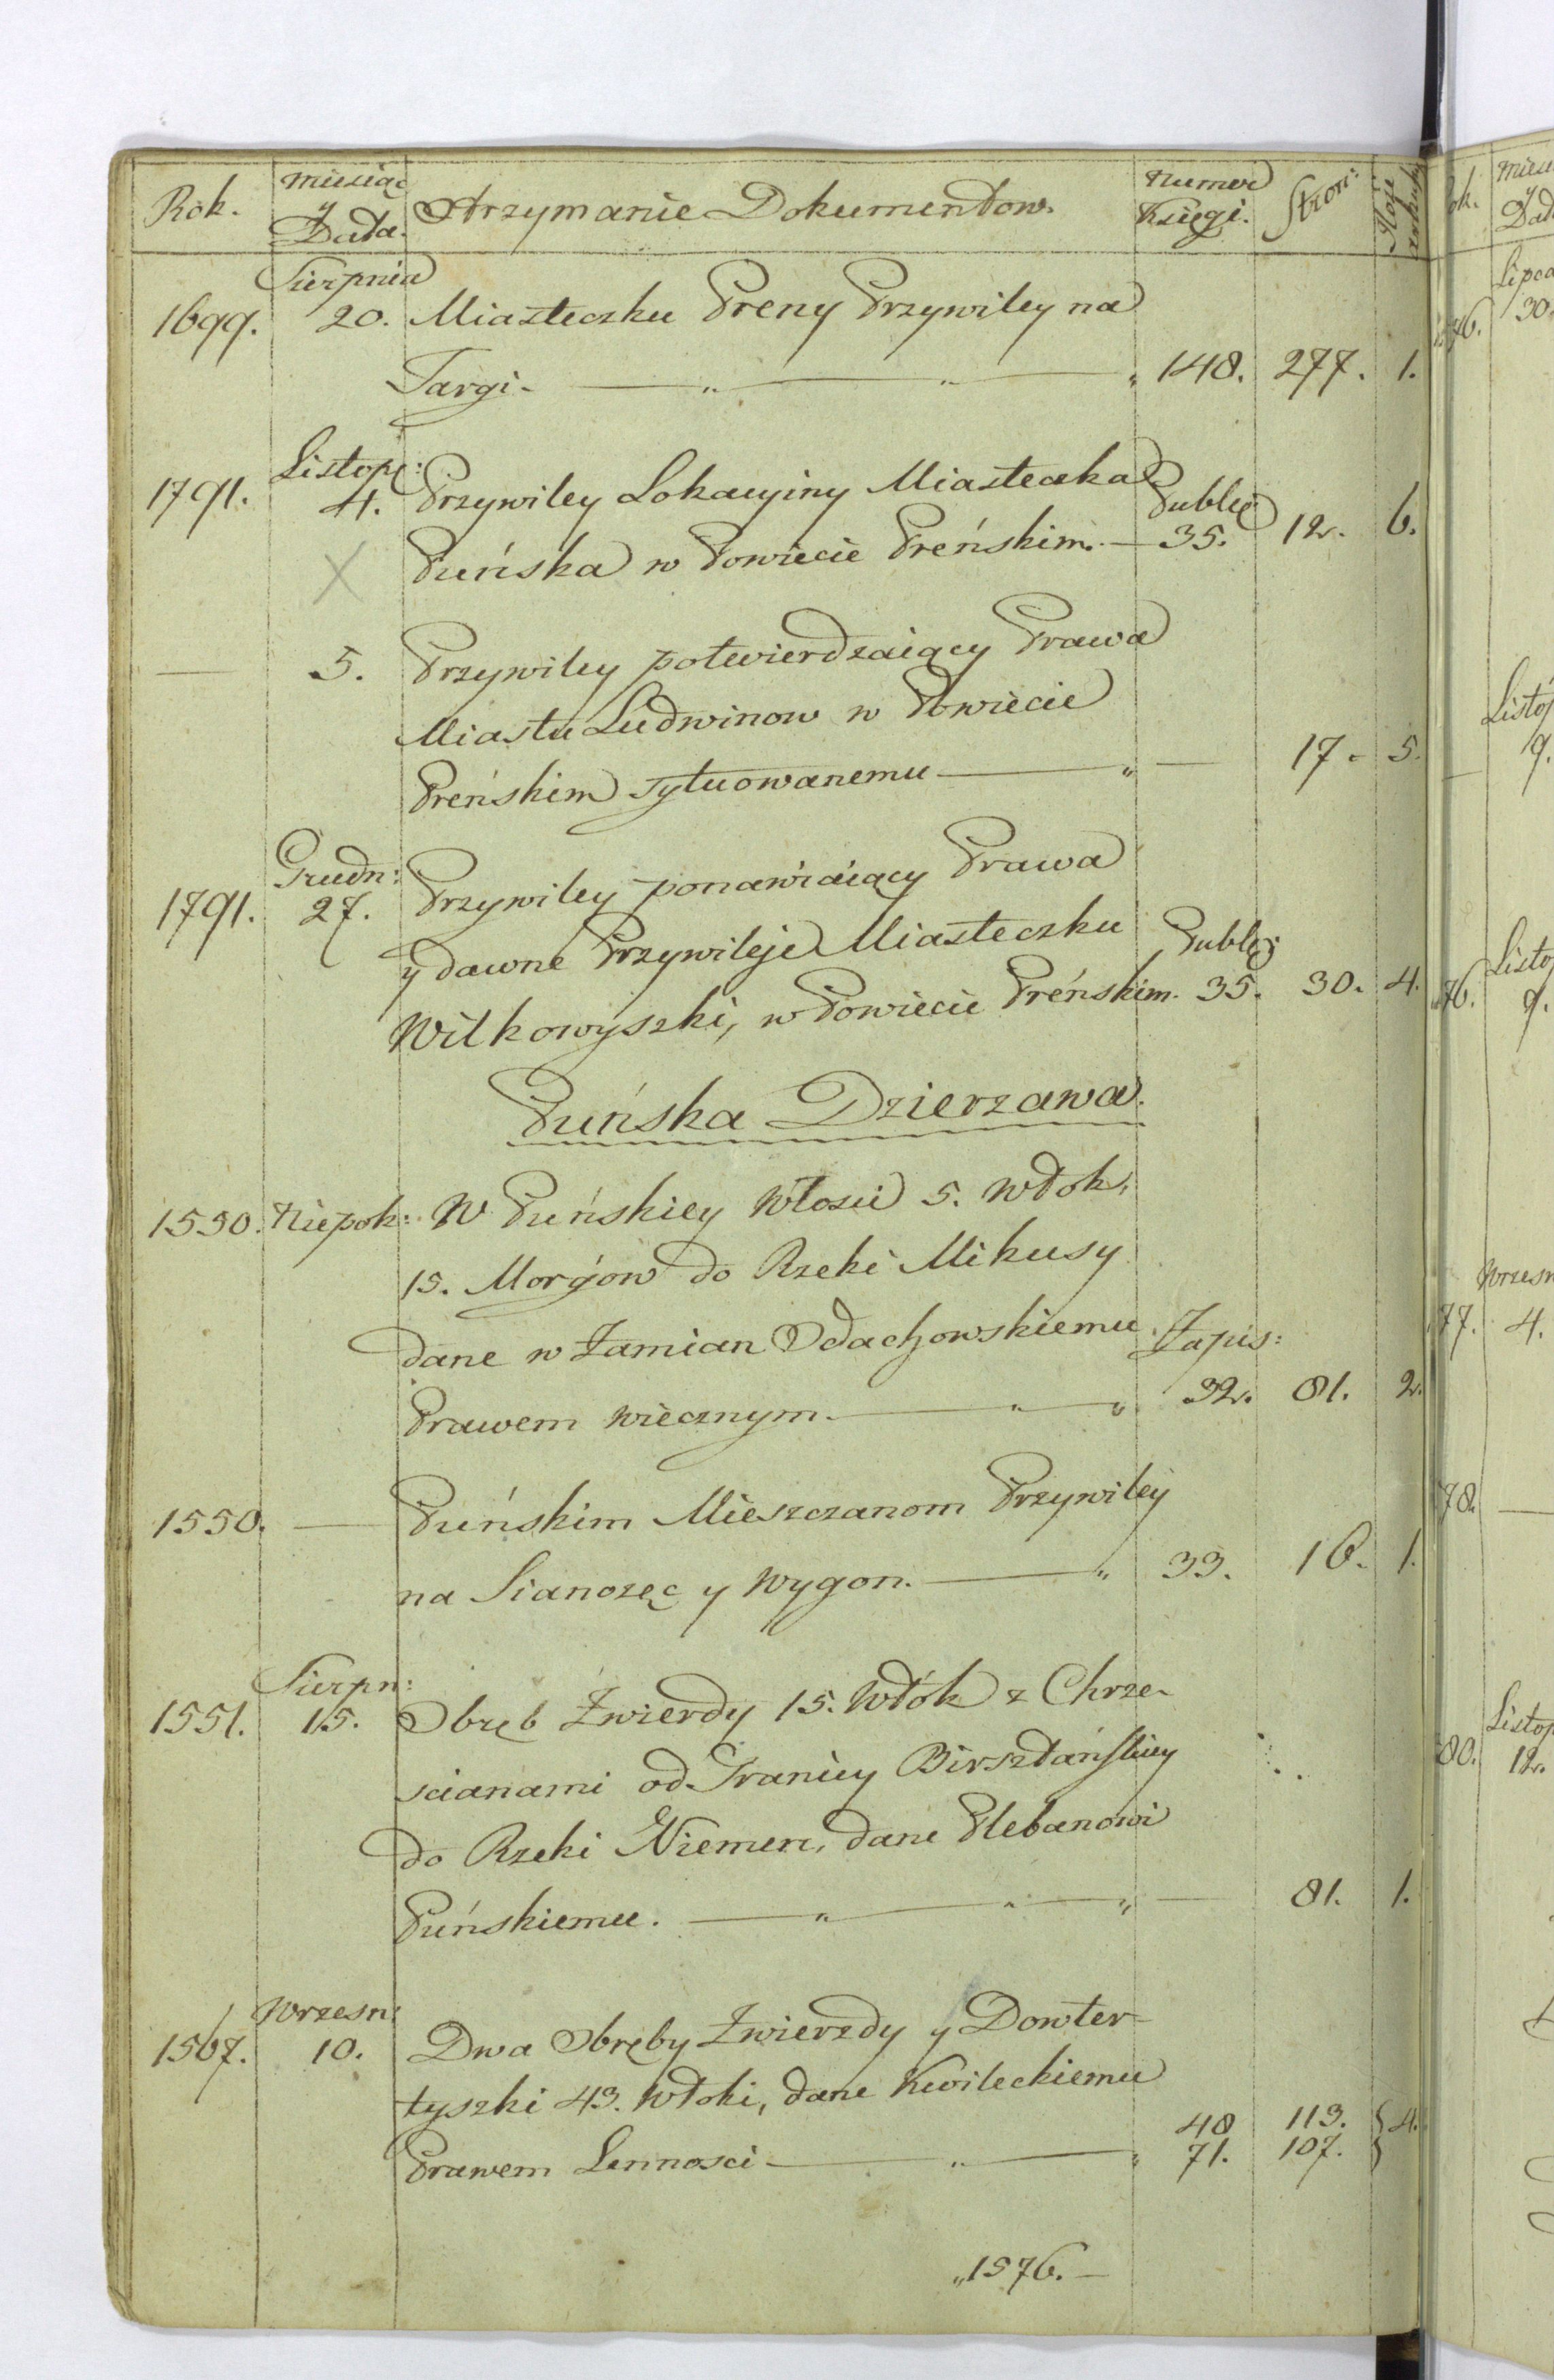 Rok. Miesiąc y Data. Otrzymanie Dokumentow. Numer Księgi. Stron:
Sierpnia
1699. 20. Miasteczku Preny Przywiley na
Targi. 148. 277. 1.
Listop:
1791. 4. Przywiley Lokacyiny Miasteczka Public:
Puńska w Powiecie Preńskim. 35. 12. 6.
5. Przywiley potwierdzaiący Prawa
Miastu Ludwinow w Powiecie
Preńskim sytuowanemu 17. 5.
Grudn:
1791. 27. Przywiley ponawiaiący Prawa
y dawne Przywileje Miasteczku Public:
Wilkowyszki, w Powiecie Preńskim. 35. 30. 4.
Puńska Dzierzawa.
1550. Niepok: W Puńskiey Włosci 5. Włok,
15. Morgow do Rzeki Mikusy
dane w Zamian Odachowskiemu Zapis:
Prawem wiecznym. 32. 81. 2.
1550. Puńskim Mieszczanom Przywiley
na Sianozęc y Wygon. 33. 16. 1.
Sierpn:
1551. 15. Obręb Zwierdy 15. Włók z Chrze-
scianami od Granicy Birsztańskiey
do Rzeki Niemen, dane Plebanowi
Puńskiemu. 81. 1.
Wrzesn:
1567. 10. Dwa Obręby Zwierzdy y Dowter-
tyszki 43. Włoki, dane Kwileckiemu
48 113. } 4.
Prawem Lennosci 71. 107.
1576.